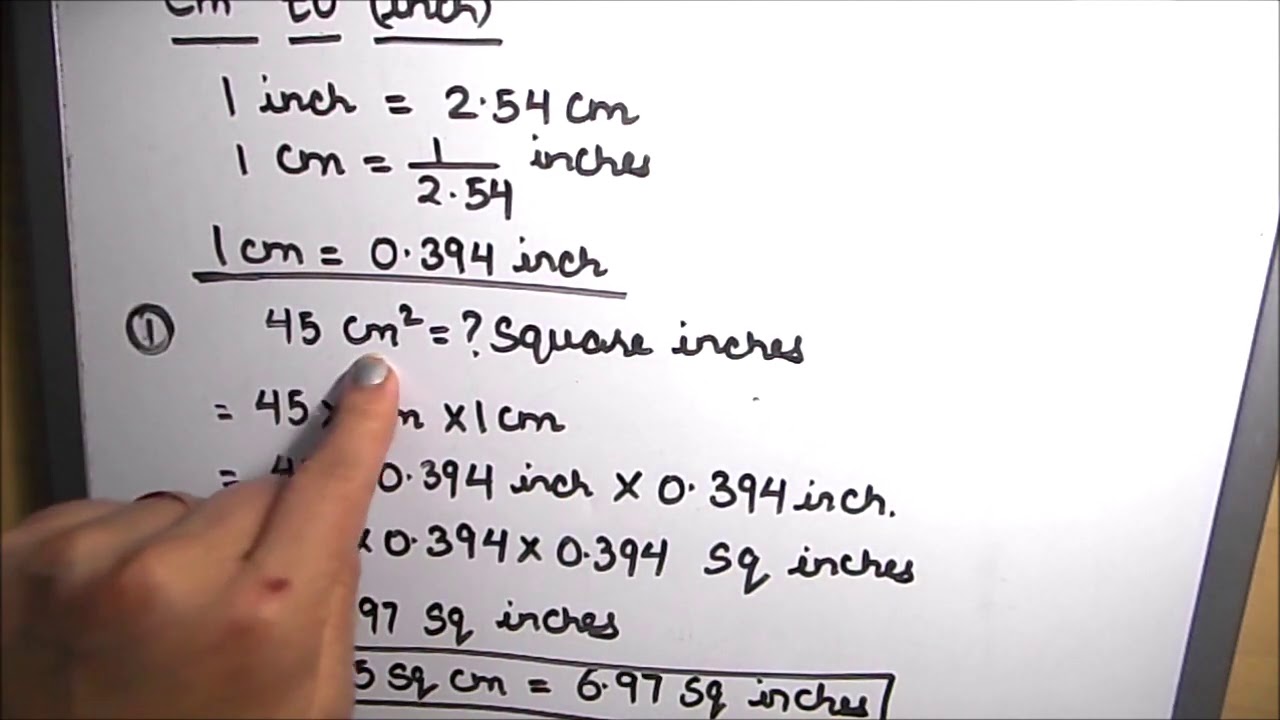 cm to (inch)
1 inch = 2.54 cm
1 cm = 1/2.54 inches
1 cm = 0.394 inch
① 45 cm² = ? Square inches
= 45 × 1 cm
= 0.394 inch × 0.394 inch.
× 0.394 × 0.394 sq inches
97 sq inches
5 sq cm = 6.97 sq inches